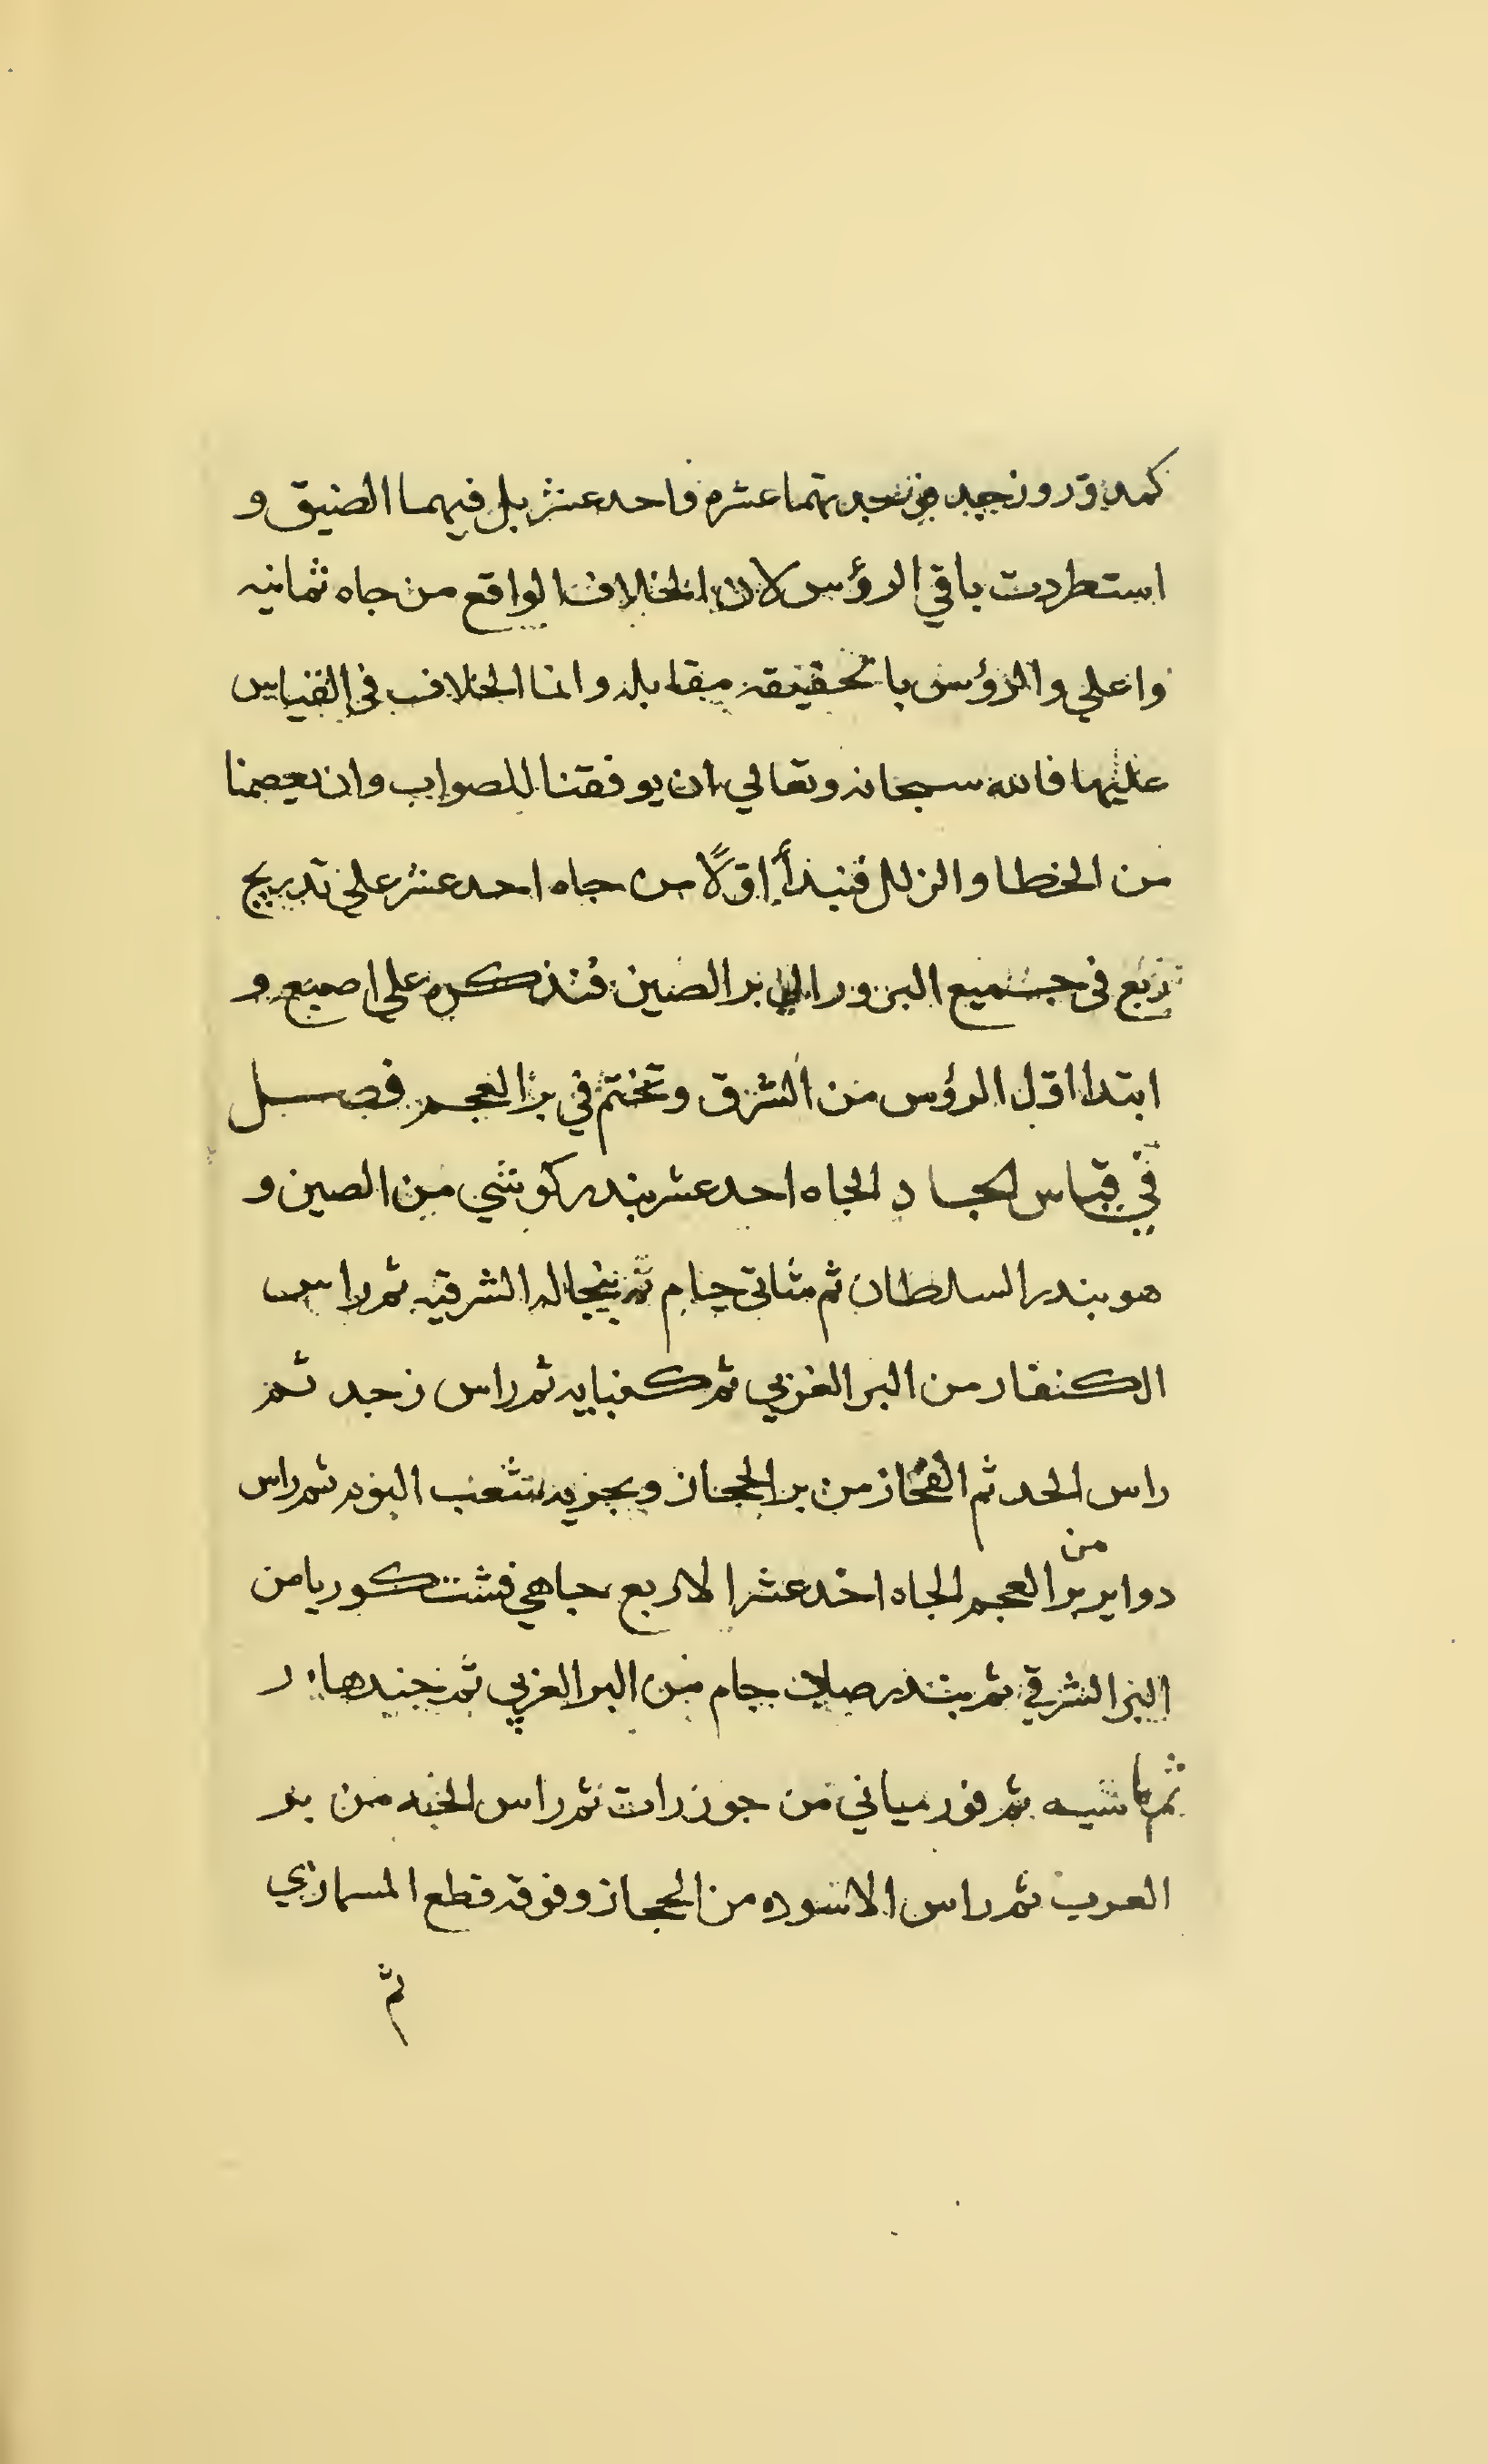 كمدور وزجد من نجد بهما عشره واحد عشر بل فيهما الضيق و
استطردت باقي الرؤس لان الخلاف الواقع من جاه ثمانيه
واعلي والرؤس بالحقيقه مقابله وانما الخلاف في القياس
عليها فالله سبحانه وتعالي ان يوفقنا للصواب وان يعصمنا
من الخطا والزلل فنبدأ اوّلًا من جاه احد عشر علي تدريج
ربع في جميع البرور الي بر الصين فنذكره علي اصبع و
ابتدا اوّل الرؤس من الشرق وتختم في بر العجم فصل
في قياس الجاه احد عشر بندر كوشي من الصين و
هو بندر السلطان ثم مثاتي جام ثم بنجاله الشرقيه ثم راس
الكنفار من البر الغربي ثم كنبايه ثم راس زجد ثم
راس الحد ثم الفحاز من بر الحجاز وبحريه شعب البوم ثم راس
دواير من بر العجم الجاه احد عشر الا ربع جاهي فشت كوريا من
البر الشرقي ثم بندر صلات جام من البر الغربي ثم جندهار
ثم ماشيه ثم فورمياني من جوزرات ثم راس الخبه من بر
العرب ثم راس الاسوده من الحجاز وفوقه قطع المسماري
ثم